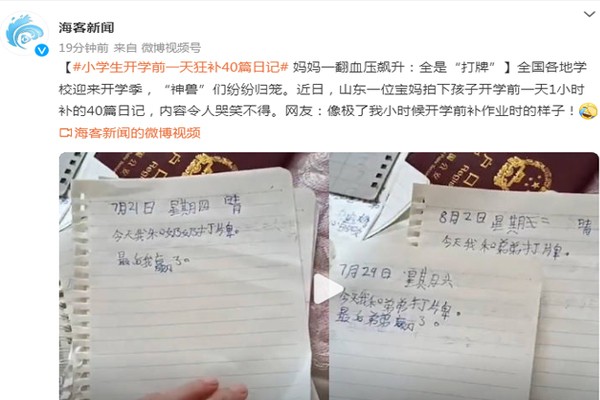 海客新闻
19分钟前 来自 微博视频号
【#小学生开学前一天狂补40篇日记# 妈妈一翻血压飙升：全是“打牌”】全国各地学
校迎来开学季，“神兽”们纷纷归笼。近日，山东一位宝妈拍下孩子开学前一天1小时
补的40篇日记，内容令人哭笑不得。网友：像极了我小时候开学前补作业时的样子！
海客新闻的微博视频
7月21日 星期四 晴
今天我和奶奶打牌。
最后我赢了。
8月2日 星期二 晴
今天我和弟弟打牌。
7月29日 星期
今天我和弟弟打牌。
最后弟弟赢了。
户口